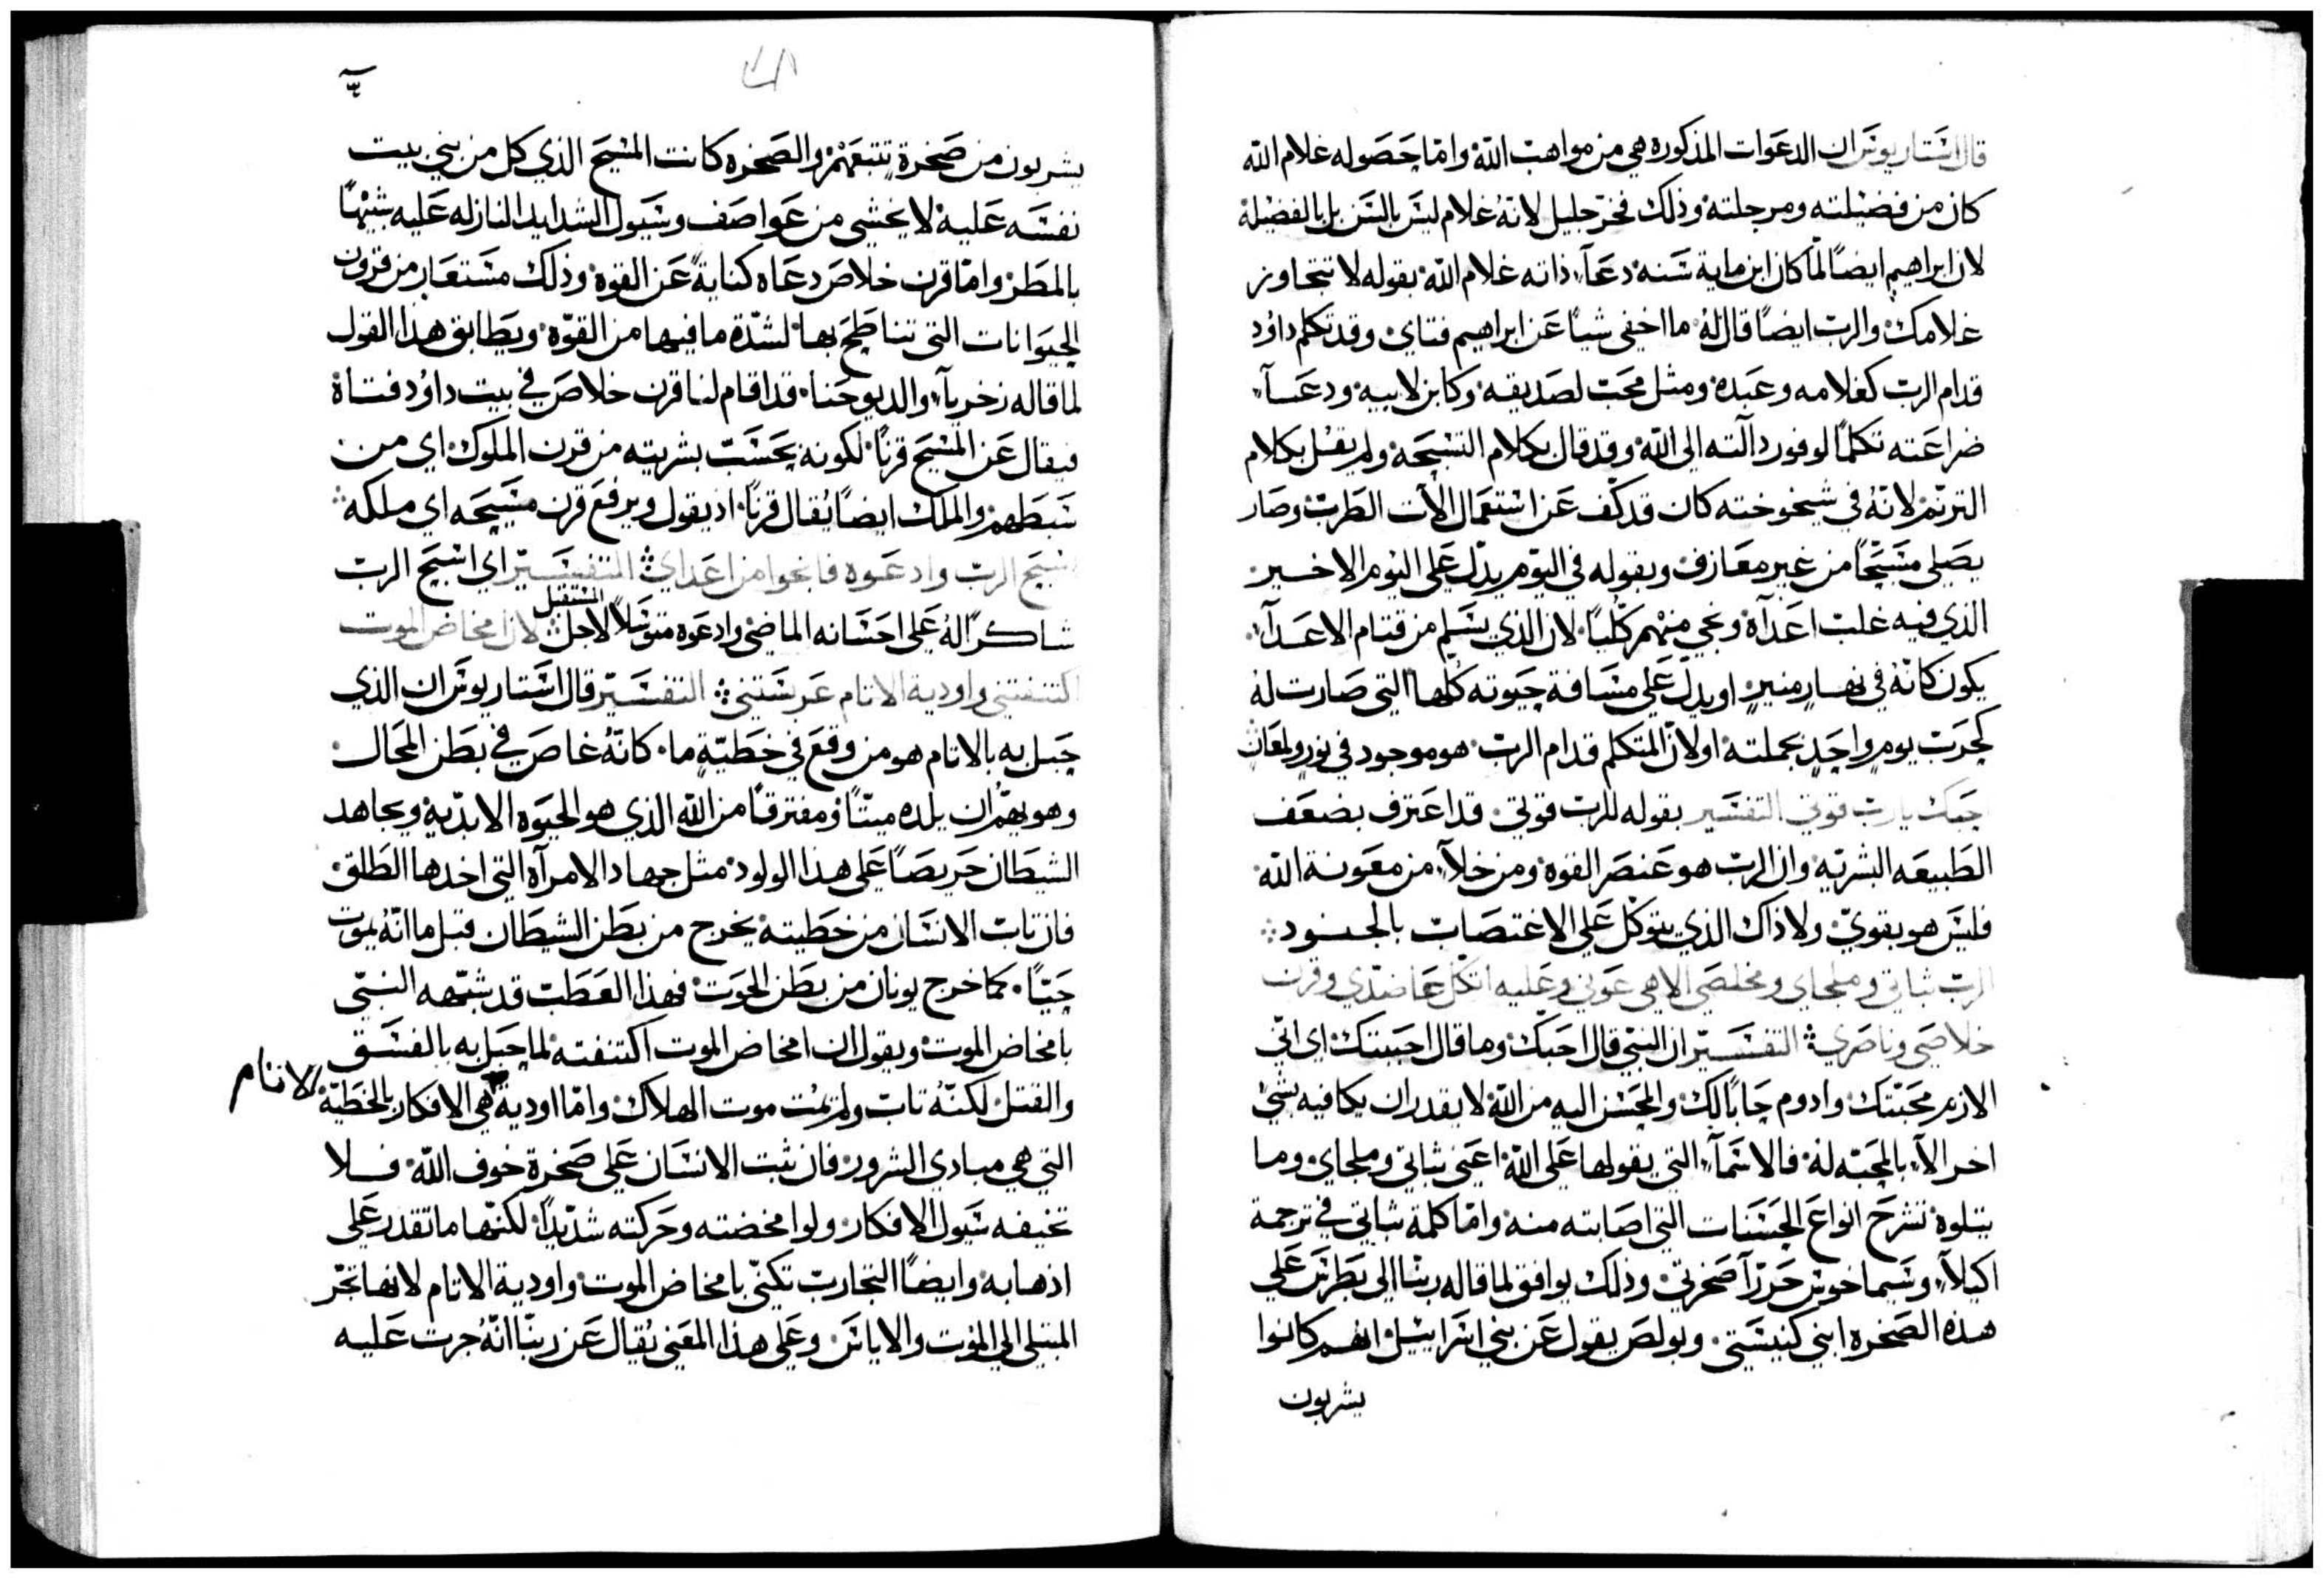 قال استاريوس ان الدعوات المذكوره هي من مواهب الله واما حصوله غلام الله
كان من فضيلته ومرجلته وذلك فخر جليل لانه غلام ليس بالسن بل بالفضيلة
لان ابراهيم ايضًا لما كان ابن ماية سنه دعآ ذاته غلام الله بقوله لا تتجاوز
غلامك والرب ايضًا قال له ما اخفي شيًا عن ابراهيم فتاي وقد تكلم داوُد
قدام الرب كغلامه وعبده ومثل محب لصديقه وكابن لابيه ودعآ
ضراعته تكلمًا لوفور دالته الى الله وقد قال بكلام التسبحه ولم يقل بكلام
الترنم لانه في شيخوخته كان قد كف عن استعمال الات الطرب وصار
يصلي مسبحًا من غير معازف وبقوله في اليوم يدل على اليوم الاخير
الذي فيه غلب اعدآه ونجي منهم كليًا لان الذي يسلم من قتام الاعدآ
يكون كانه في نهار منير او يدل على مسافة حيوته كلها التي صارت له
كحرب يومٍ واحدٍ بجملته اولان المتكلم قدام الرب هو موجود في نور ولمعان
حبك يارب قوتي التفسير بقوله للرب قوتي قد اعترف بضعف
الطبيعه البشريه وان الرب هو عنصر القوه ومن خلآ من معونة الله
فليس هو بقوي ولا ذاك الذي يتوكل على الاعتصاب بالجنود
الرب ثباتي وملجاي ومخلصي الاهي عوني وعليه اتكل عاضدي وقرن
خلاصي وناصري التفسير ان النبي قال احبك وما قال احببتك اي اني
الازم محبتك وادوم حابًا لك والمحسن اليه من الله لا يقدر ان يكافيه بشي
اخر الآ بالمحبه له فالاسمآ التي يقولها على الله اعني ثباتي وملجاي وما
يتلوه تشرح انواع الحسنات التي اصابته منه واما كلمة ثباتي في ترجمة
اكيلآ وسيماخوس حررآ صخرتي وذلك يوافق لما قاله ربنا الى بطرس على
هذه الصخره ابني كنيستي وبولص يقول عن بني اسراييل انهم كانوا
يشربون
يشربون من صخرة تتبعهم والصخره كانت المسيح الذي كل من بني بيت
نفسه عليه لا يخشى من عواصف وسيول الشدايد النازله عليه شبهًا
بالمطر واما قرن خلاص دعاه كناية عن القوه وذلك مستعار من قرون
الحيوانات التي تتناطح بها لشدة ما فيها من القوه ويطابق هذا القول
لما قاله زخريآ والد يوحنا قد اقام لنا قرن خلاص في بيت داوُد فتاه
فيقال عن المسيح قرنًا لكونه بحسب بشريته من قرن الملوك اي من
سبطهم والملك ايضًا يُقال قرنًا اذ يقول ويرفع قرن مسيحه اي ملكه
اسبح الرب وادعوه فانجوا من اعداي التفسير اي اسبح الرب
شاكرًا له على احسانه الماضي وادعوه متوسلًا لاجل المستقبل لان امخاض الموت
اكتنفتني واودية الاثام عرستني التفسير قال استاريوس ان الذي
حبل به بالاثام هو من وقع في خطيةٍ ما كانه غاص في بطن المحال
وهو يهم ان يلده ميتًا ومفترقًا من الله الذي هو الحيوه الابديه ويجاهد
الشيطان حريصًا على هذا الولود مثل جهاد الامرآه التي اخدها الطلق
فان تاب الانسان من خطيته يخرج من بطن الشيطان قبل ما انه يموت
حيًا كما خرج يونان من بطن الحوت فهذا العطب قد شبهه النبي
بامخاض الموت ويقول ان امخاض الموت اكتنفته لما حبل به بالفسق
والقتل لكنه تاب ولم يمت موت الهلاك واما اودية هي الافكار بالخطيه
الاثام
التي هي مبادي الشرور فان ثبت الانسان على صخرة خوف الله فلا
تخيفه سيول الافكار ولو امخضته وحركته شديدًا لكنها ما تقدر على
اذهابه وايضًا التجارب تكني بامخاض الموت واودية الاثام لانها تجر
المبتلي الى الموت والاياس وعلى هذا المعني يُقال عن ربنا انه جرت عليه